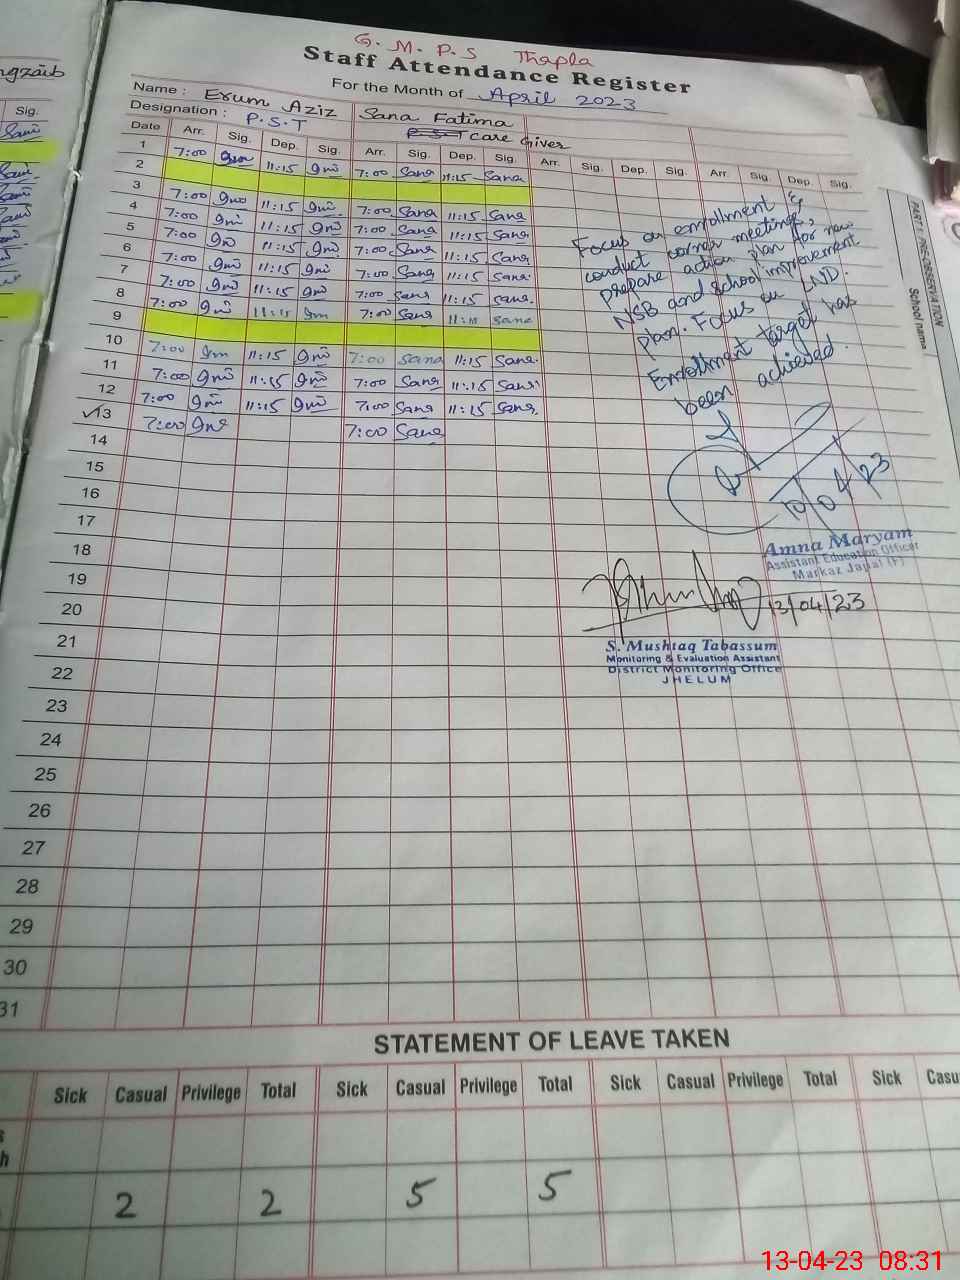 G. M. P. S Thapla
Staff Attendance Register
For the Month of April 2023
ngzaib
Name : Erum Aziz Sana Fatima
Designation : P.S.T P.S.T care Giver
Sig.
Date Arr. Sig. Dep. Sig. Arr. Sig. Dep. Sig. Arr. Sig. Dep. Sig. Arr. Sig. Dep. Sig.
1 7:00 11:15 7:00 Sana 11:15 Sana
2
3 7:00 11:15 7:00 Sana 11:15 Sana
4 7:00 11:15 7:00 Sana 11:15 Sana
5 7:00 11:15 7:00 Sana 11:15 Sana
6 7:00 11:15 7:00 Sana 11:15 Sana
7 7:00 11:15 7:00 Sana 11:15 Sana
8 7:00 11:15 7:00 Sana 11:15 Sana
9
10 7:00 11:15 7:00 Sana 11:15 Sana
11 7:00 11:15 7:00 Sana 11:15 Sana
12 7:00 11:15 7:00 Sana 11:15 Sana
13 7:00 7:00 Sana
14
15
16
17
18
19
20
21
22
23
24
25
26
27
28
29
30
31
Focus on enrollment &
conduct corner meetings,
prepare action plan for new
NSB and school improvement
plan. Focus on LND.
Enrollment target has
been achieved.
10/04/23
Amna Maryam
Assistant Education Officer
Markaz Jalal (F)
13/04/23
S. Mushtaq Tabassum
Monitoring & Evaluation Assistant
District Monitoring Office
JHELUM
PART 1 PRE-OBSERVATION
School name
STATEMENT OF LEAVE TAKEN
Sick Casual Privilege Total Sick Casual Privilege Total Sick Casual Privilege Total Sick Casu
2 2 5 5
13-04-23 08:31